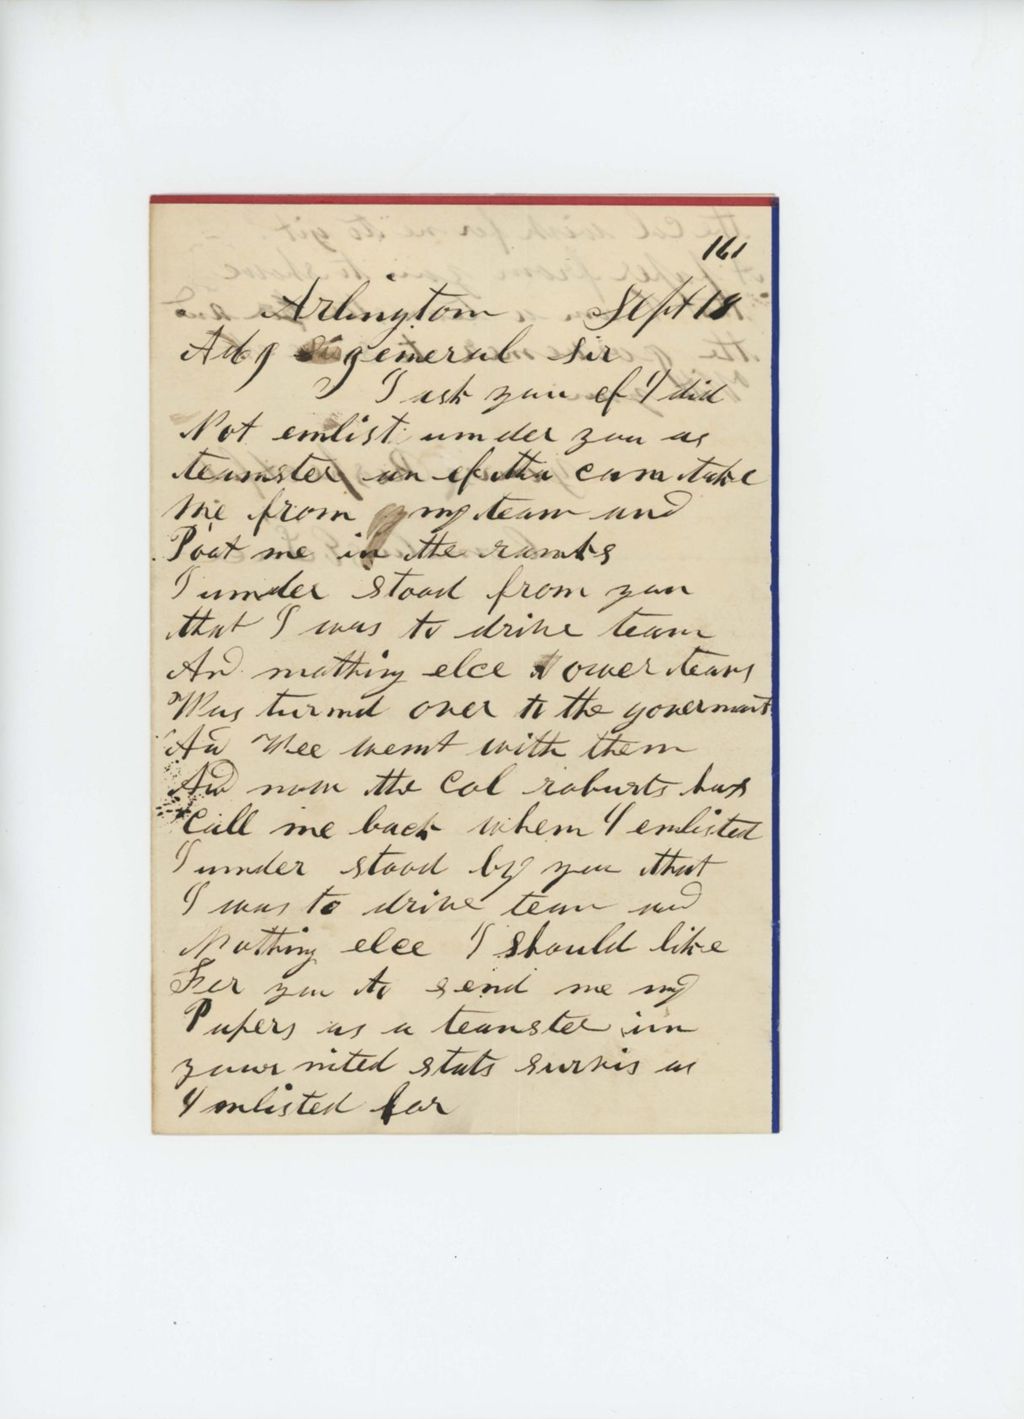 161
Arlington Sept 18
Adg general Sir
I ask you ef I did
Not enlist under you as
teamster an ef tha can take
Me from my team and
Poat me in the ranks
I under stood from you
that I was to drive team
And nothing elce ower teams
Was turnd over to the goverment
And Wee went with them
And now the Col roburts has
Call me back when I enlisted
I under stood by you that
I was to drive team and
Nothing elce I should like
Fer you to send me my
Papers as a teamster in
your nited stats survis as
I enlisted for